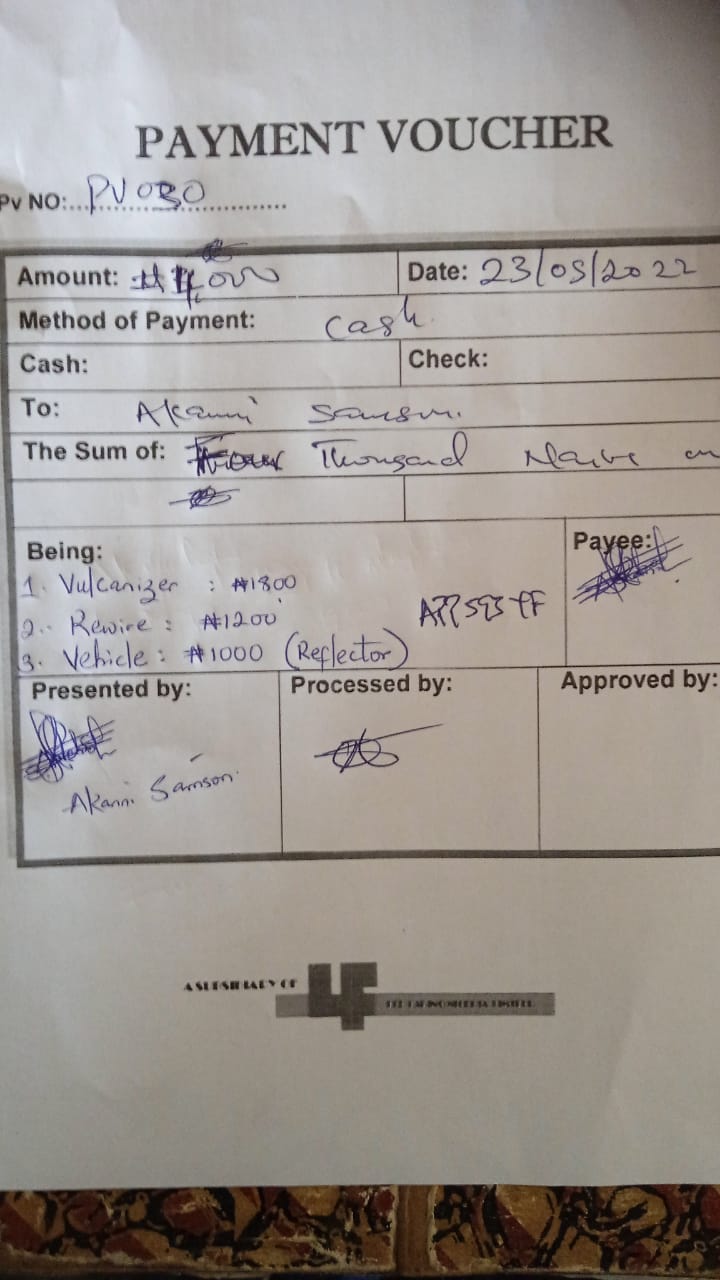 PAYMENT VOUCHER
Pv NO:....PV 030..............
Amount: ₦4,000 Date: 23/05/2022
Method of Payment: Cash
Cash: Check:
To: Akanni Samson.
The Sum of: Four Thousand Naira
Being: Payee:
1. Vulcanizer : ₦1800
2. Rewire : ₦1200
3. Vehicle : ₦1000 (Reflector)
Presented by: Processed by: Approved by:
Akanni Samson
A SUBSIDIARY OF